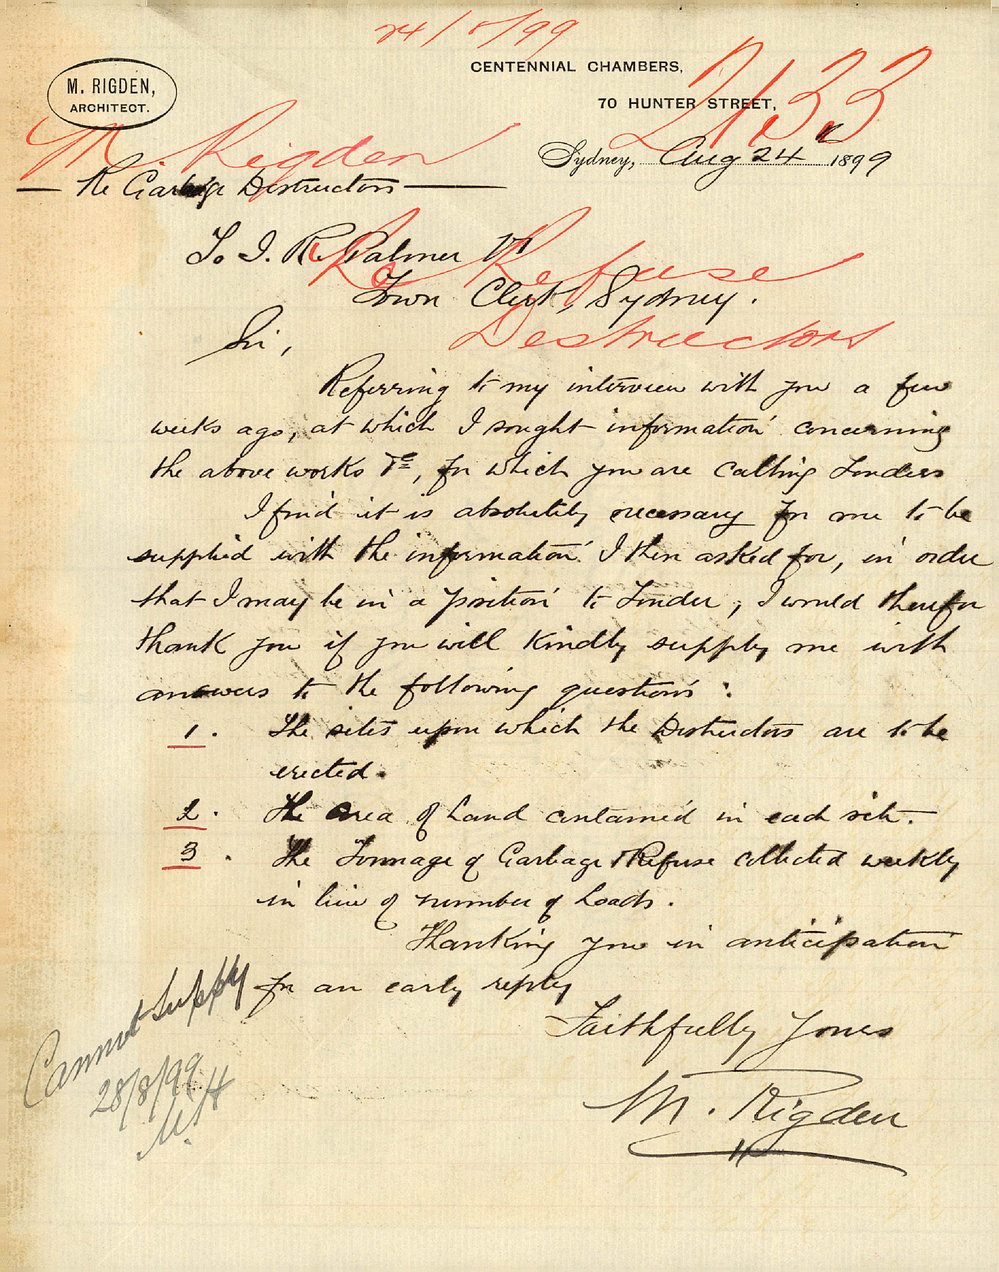 24/8/99
CENTENNIAL CHAMBERS,
M. RIGDEN,
ARCHITECT.
70 HUNTER STREET,
2133
M. Rigden
Sydney, Aug 24 1899
Re Garbage Destructors
To J. R. Palmer
Town Clerk, Sydney.
Re Refuse
Destructors
Sir,
Referring to my interview with you a few
weeks ago, at which I sought information concerning
the above works &c, for which you are calling Tenders
I find it is absolutely necessary for me to be
supplied with the information I then asked for, in order
that I may be in a position to Tender, I would therefor
thank you if you will kindly supply me with
answers to the following questions:
1. The sites upon which the Destructors are to be
erected.
2. The area of Land contained in each site.
3. The Tonnage of Garbage & Refuse collected weekly
in lieu of number of Loads.
Thanking you in anticipation
for an early reply
Faithfully Yours
M. Rigden
Cannot supply
28/8/99